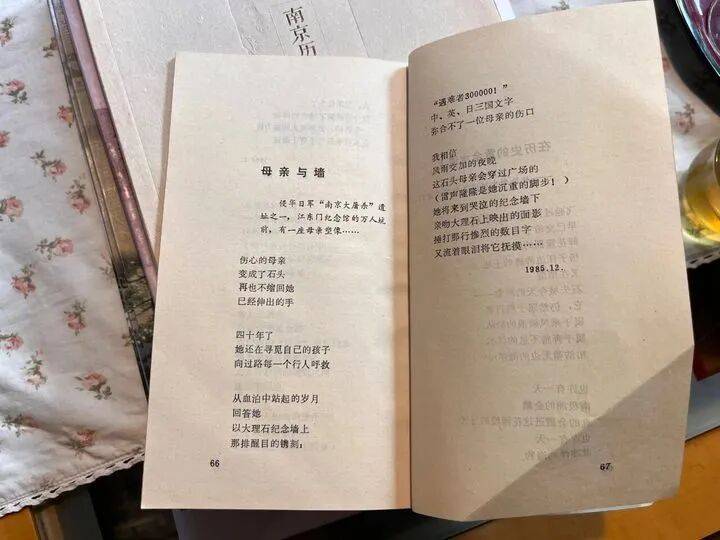 南京历
母亲与墙
侵华日军“南京大屠杀”遗
址之一，江东门纪念馆的万人坑
前，有一座母亲塑像……
伤心的母亲
变成了石头
再也不缩回她
已经伸出的手
四十年了
她还在寻觅自己的孩子
向过路每一个行人呼救
从血泊中站起的岁月
回答她
以大理石纪念墙上
那排醒目的镌刻：
66
“遇难者300000！”
中、英、日三国文字
弥合不了一位母亲的伤口
我相信
风雨交加的夜晚
这石头母亲会穿过广场的
（雷声隆隆是她沉重的脚步！）
她将来到哭泣的纪念墙下
亲吻大理石上映出的面影
捶打那行惨烈的数目字
又流着眼泪将它抚摸……
1985.12.
67